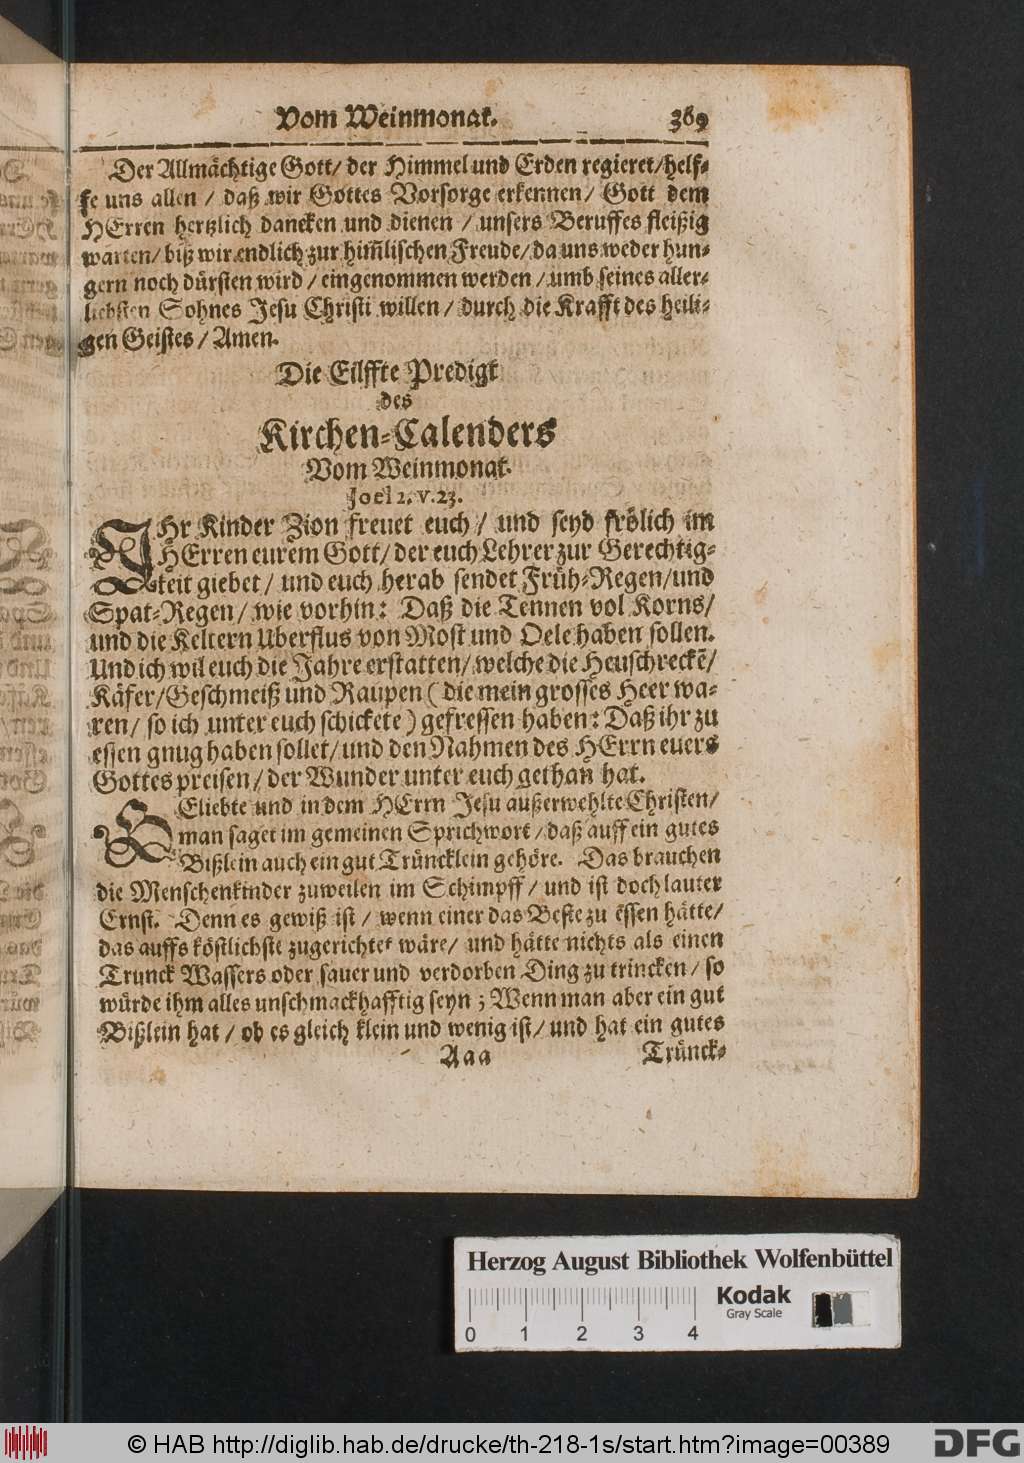 Vom Weinmonat. 369
Der Allmächtige Gott/ der Himmel und Erden regieret/helf-
fe uns allen / daß wir Gottes Vorsorge erkennen/ Gott dem
HErren hertzlich dancken und dienen / unsers Beruffes fleißig
warten/ biß wir endlich zur him̃lischen Freude/ da uns weder hun-
gern noch dürsten wird / eingenommen werden / umb seines aller-
liebsten Sohnes Jesu Christi willen / durch die Krafft des heili-
gen Geistes / Amen.
Die Eilffte Predigt
des
Kirchen-Calenders
Vom Weinmonat.
Joel 2. v. 23.
IHr Kinder Zion freuet euch / und seyd frölich im
HErren eurem Gott/ der euch Lehrer zur Gerechtig-
keit giebet / und euch herab sendet Früh-Regen/und
Spat-Regen/ wie vorhin: Daß die Tennen vol Korns/
und die Keltern Uberflus von Most und Oele haben sollen.
Und ich wil euch die Jahre erstatten/ welche die Heuschreckẽ/
Käfer/Geschmeiß und Raupen ( die mein grosses Heer wa-
ren/ so ich unter euch schickete ) gefressen haben: Daß ihr zu
essen gnug haben sollet/ und den Nahmen des HErrn euers
Gottes preisen/ der Wunder unter euch gethan hat.
GEliebte und in dem HErrn Jesu außerwehlte Christen/
man saget im gemeinen Sprichwort/ daß auff ein gutes
Bißlein auch ein gut Trüncklein gehöre. Das brauchen
die Menschenkinder zuweilen im Schimpff / und ist doch lauter
Ernst. Denn es gewiß ist / wenn einer das Beste zu essen hätte/
das auffs köstlichste zugerichtet wäre/ und hätte nichts als einen
Trunck Wassers oder sauer und verdorben Ding zu trincken/ so
würde ihm alles unschmackhafftig seyn; Wenn man aber ein gut
Bißlein hat / ob es gleich klein und wenig ist/ und hat ein gutes
Aaa Trünck-
Herzog August Bibliothek Wolfenbüttel
0 1 2 3 4
Kodak
Gray Scale
© HAB http://diglib.hab.de/drucke/th-218-1s/start.htm?image=00389
DFG